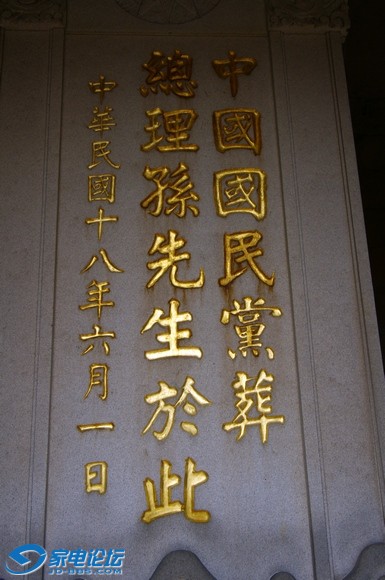 中國國民黨葬
總理孫先生於此
中華民國十八年六月一日
家电论坛
JD-BBS.COM